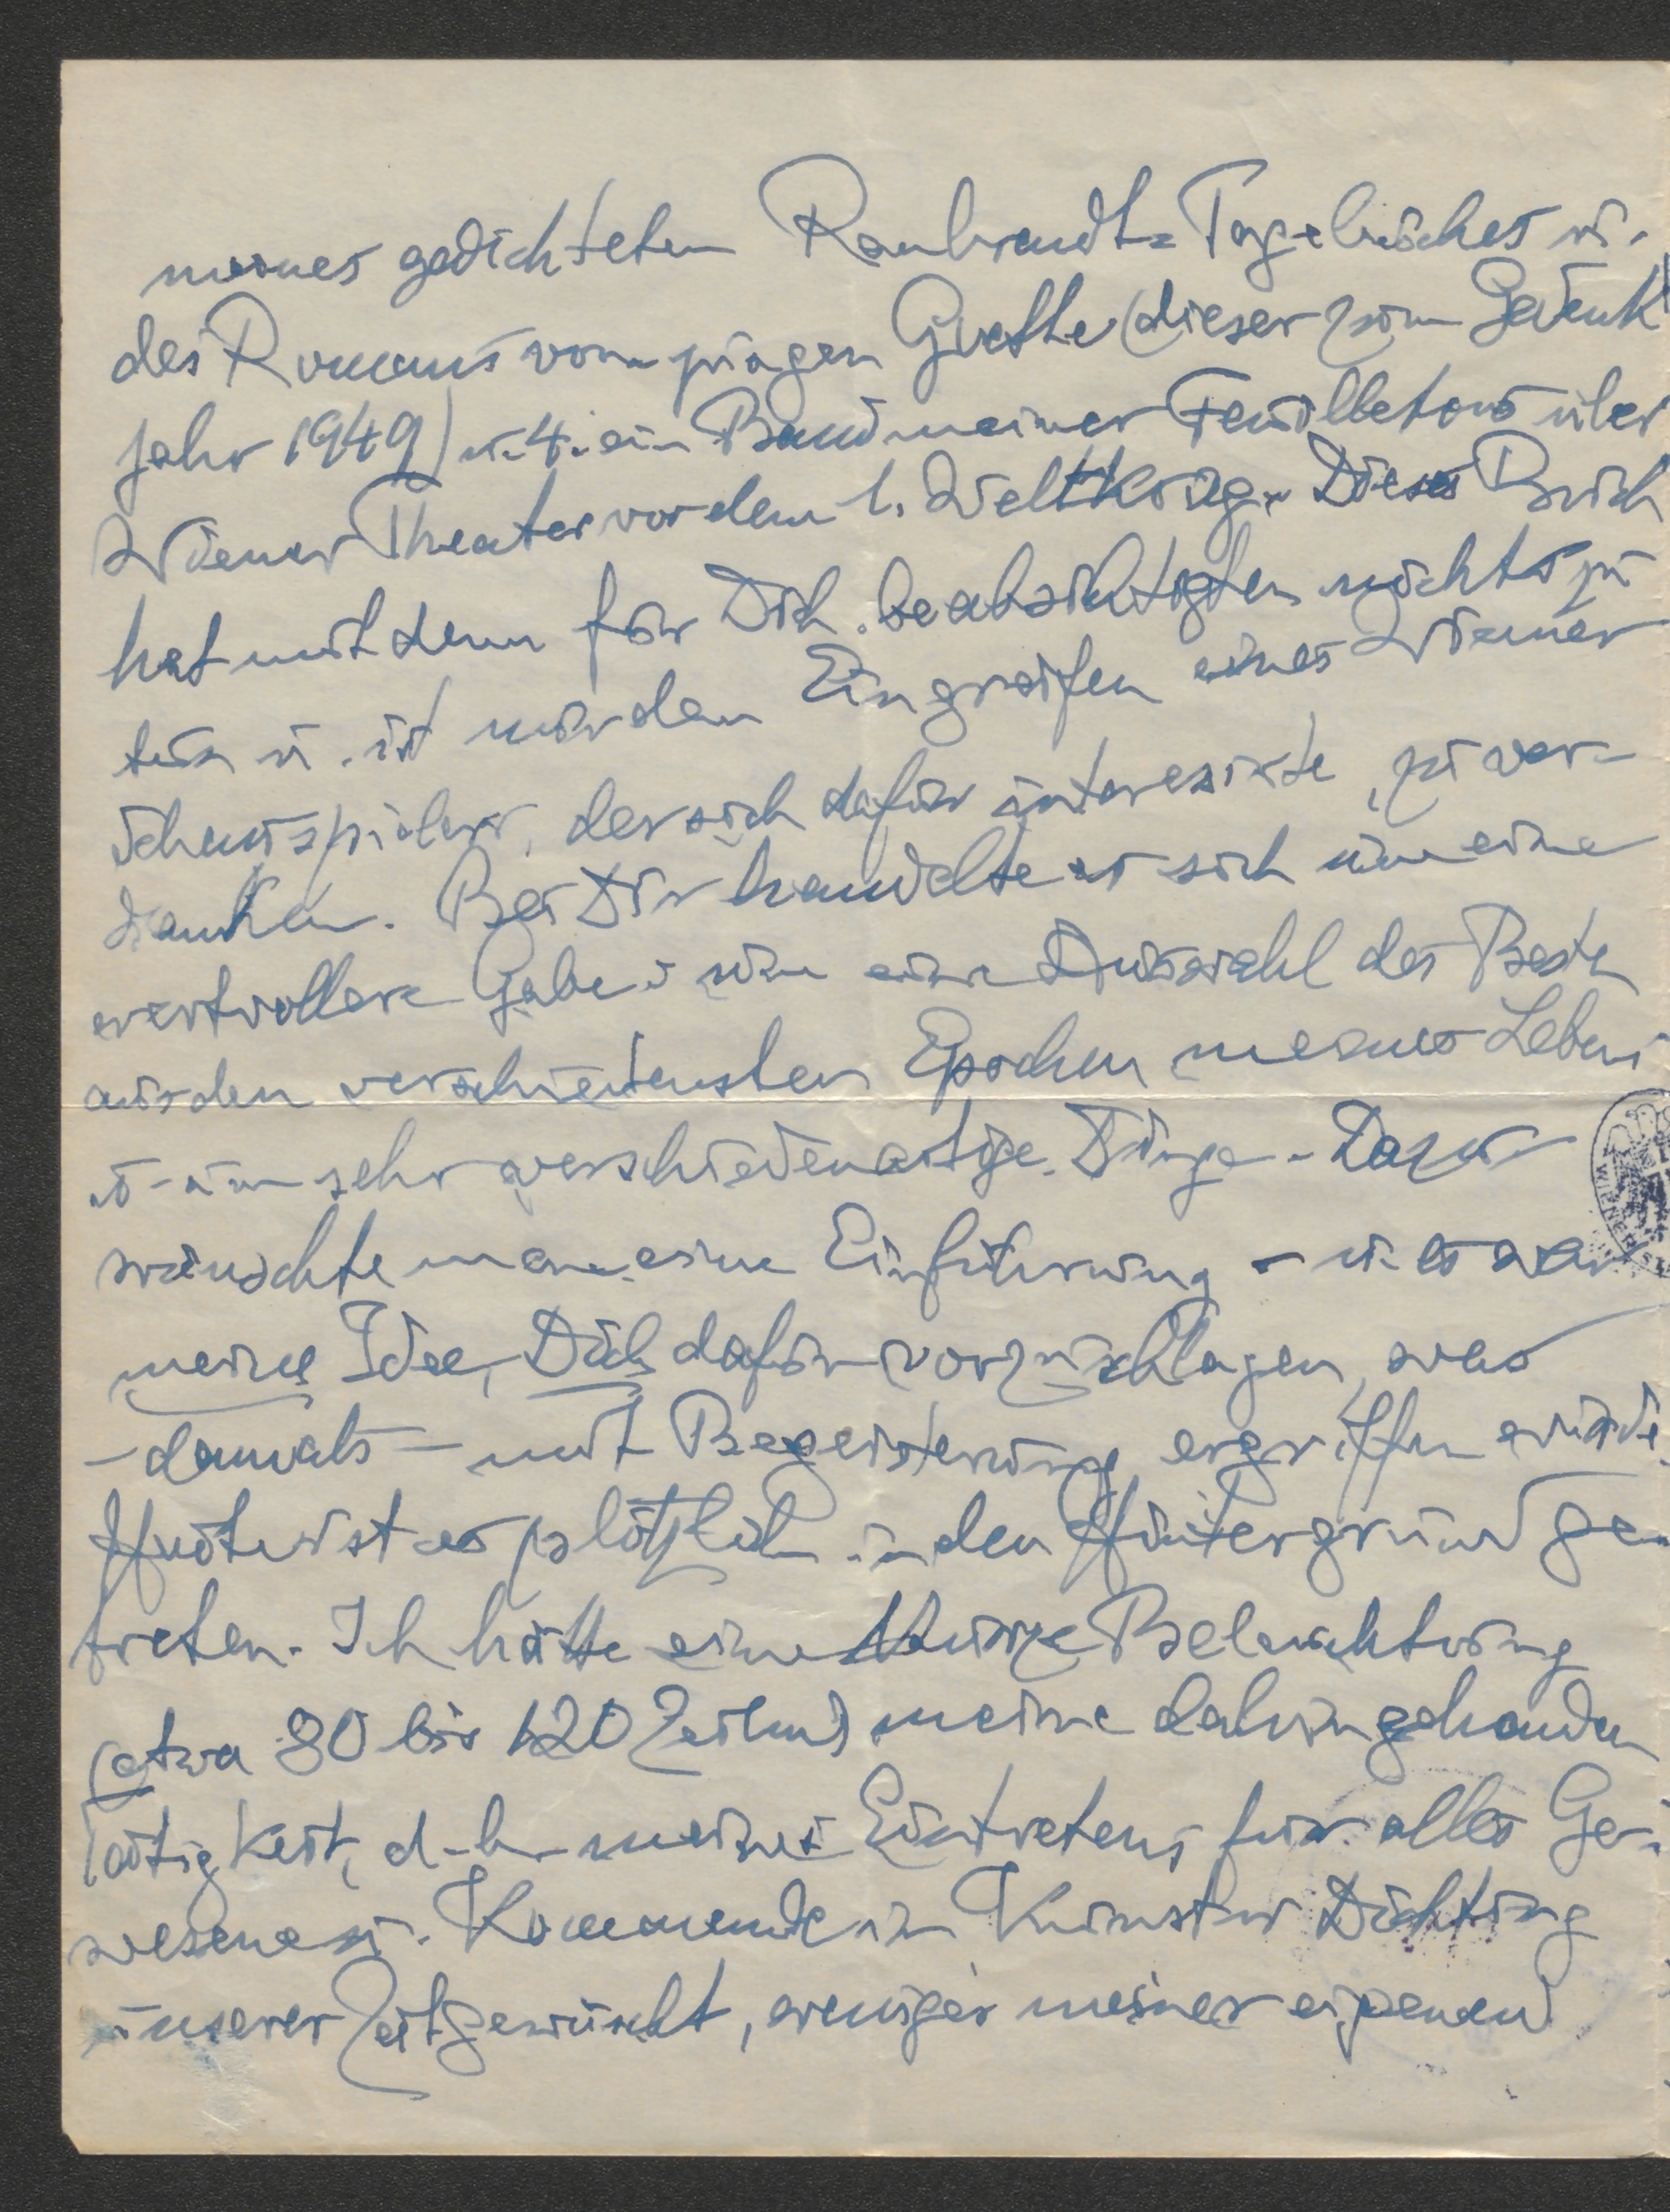 meines gedichteten Rembrandt-Tagebuches u.
des Romans vom jungen Goethe (dieser zum Gedenk
jahr 1949) u. 4. ein Band meiner Feuilletons über
Wiener Theater vor dem 1. Weltkrieg. Dieses Buch
hat mit dem für Dich beabsichtigten nichts zu
tun u. ist nur dem Eingreifen eines Wiener
Schauspielers, der sich dafür interessirte, zu ver-
danken. Bei Dir handelte es sich um eine
wertvollere Gabe: um eine Auswahl des Besten
aus den verschiedensten Epochen meines Lebens
u. um sehr verschiedenartige Dinge. Dazu
wünschte man eine Einführung – u. es war
meine Idee, Dich dafür vorzuschlagen, was
– damals – mit Begeisterung ergriffen wurde.
Heute ist es plötzlich in den Hintergrund ge-
treten. Ich hätte eine kurze Beleuchtung
(etwa 80 bis 120 Zeilen) meine dahingehenden
Tätigkeit, d. h. meines Eintretens für alles Ge-
wesene u. Kommende in Kunst u. Dichtung
unserer Zeit gewünscht, weniger meiner eigenen